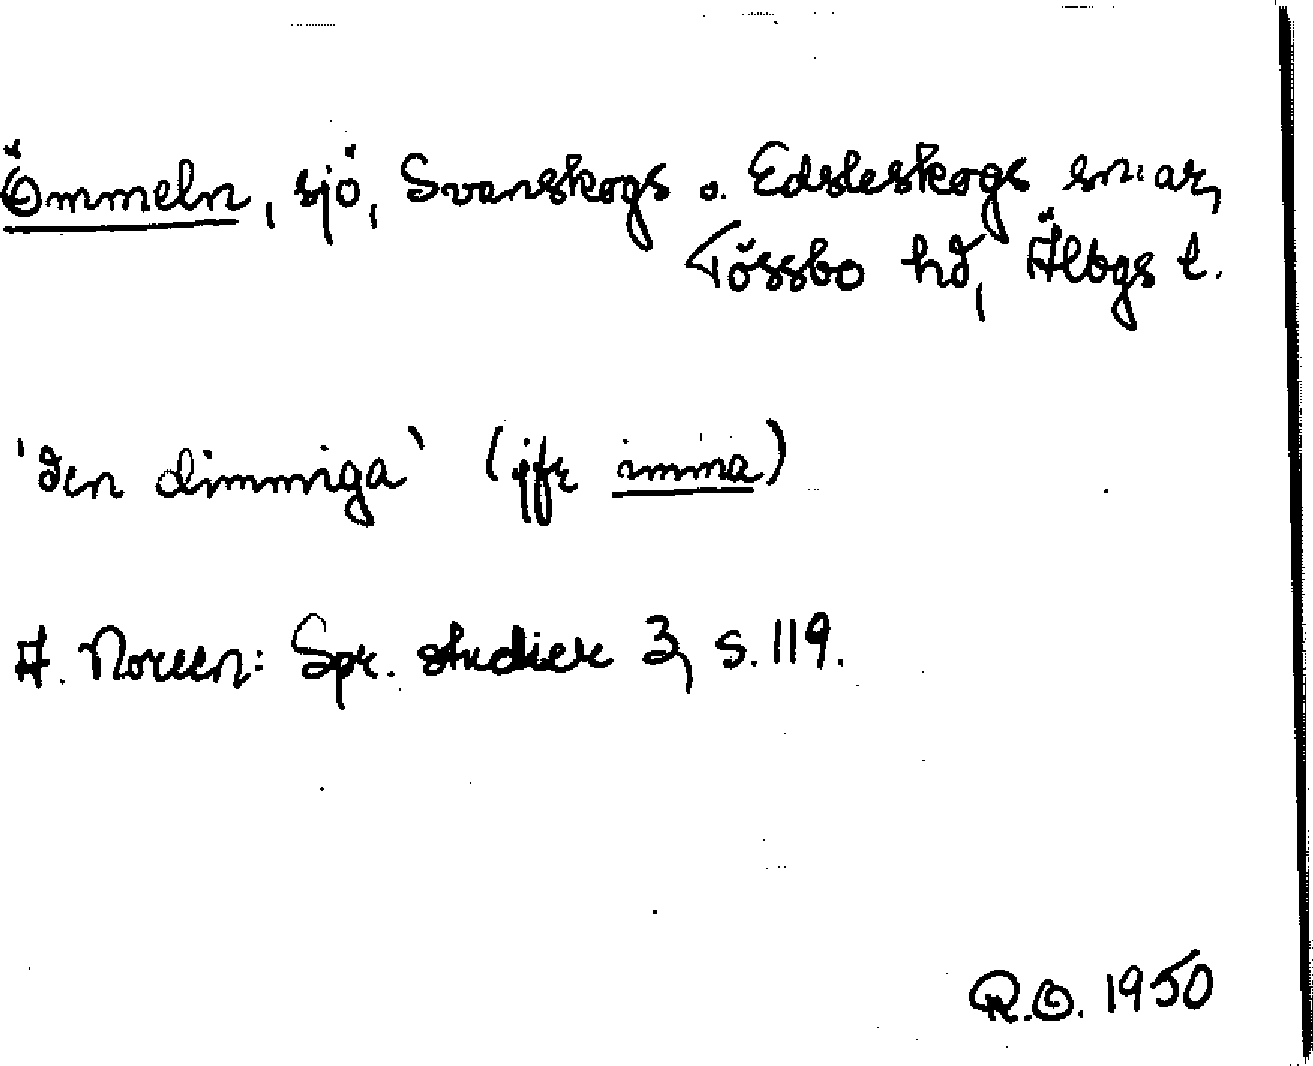 Ömmeln, sjö, Svanskogs o. Edsleskogs sn:ar,
Tössbo hd, Älvbgs l.
'den dimmiga' (jfr imma)
A. Noreen: Spr. studier 3, s. 119.
R.O. 1950